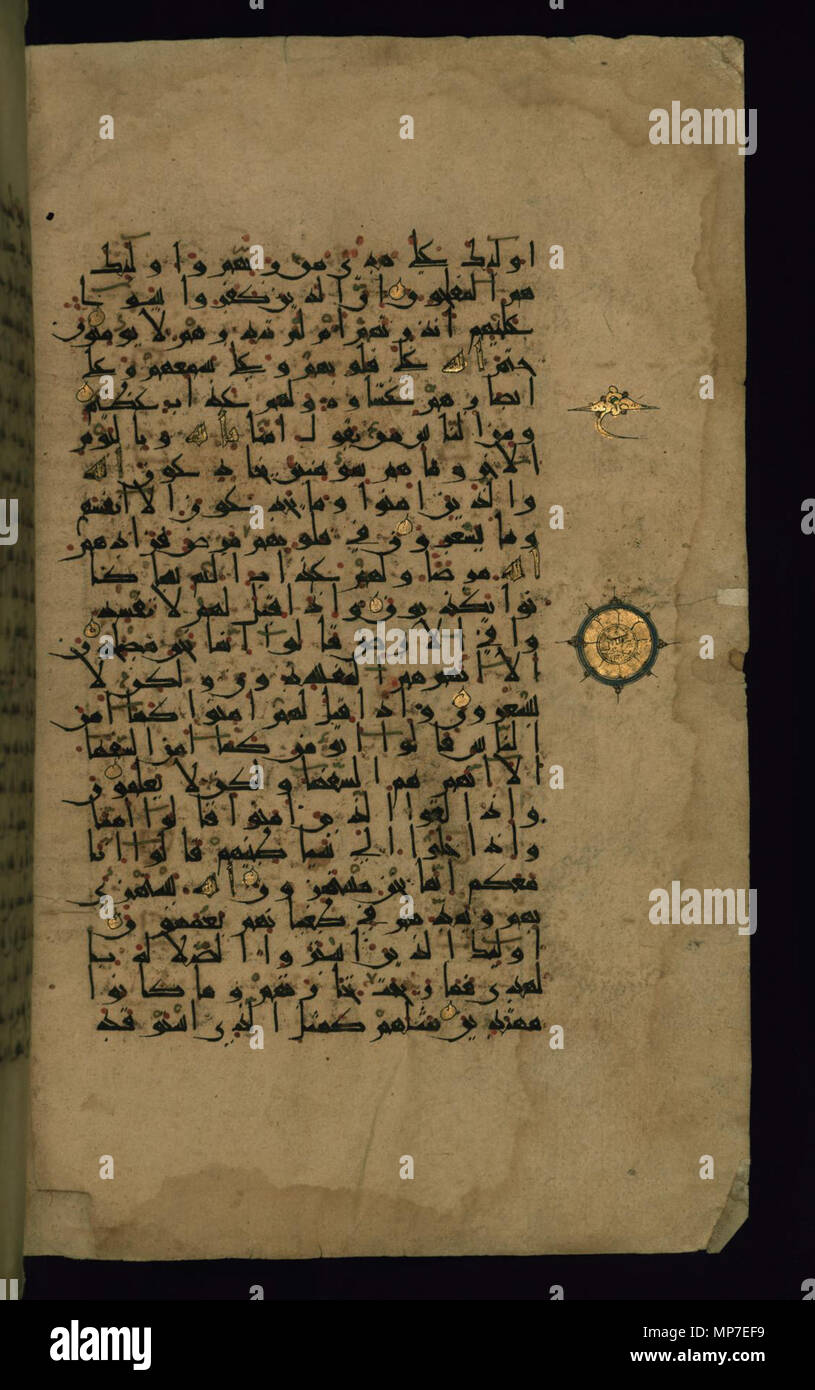 اولئك على هدى من ربهم واولئك
هم المفلحون ان الذين كفروا سوا
عليهم انذرتهم ام لم تنذرهم لا يؤمنون
ختم الله على قلوبهم وعلى سمعهم وعلى
ابصارهم غشاوة ولهم عذاب عظيم
ومن الناس من يقول امنا بالله وباليوم
الاخر وما هم بمؤمنين يخادعون الله
والذين امنوا وما يخدعون الا انفسهم
وما يشعرون في قلوبهم مرض فزادهم
الله مرضا ولهم عذاب اليم بما كا
نوا يكذبون واذا قيل لهم لا تفسد
وا في الارض قالوا انما نحن مصلحون
الا انهم هم المفسدون ولكن لا
يشعرون واذا قيل لهم امنوا كما امن
الناس قالوا انؤمن كما امن السفها
الا انهم هم السفها ولكن لا يعلمون
واذا لقوا الذين امنوا قالوا امنا
واذا خلوا الى شياطينهم قالوا انا
معكم انما نحن مستهزون الله يستهزى
بهم ويمدهم في طغيانهم يعمهون
اولئك الذين اشتروا الضلالة با
لهدى فما ربحت تجارتهم وما كانوا
مهتدين مثلهم كمثل الذي استوقد
alamy
alamy
alamy
alamy
Image ID: MP7EF9
www.alamy.com